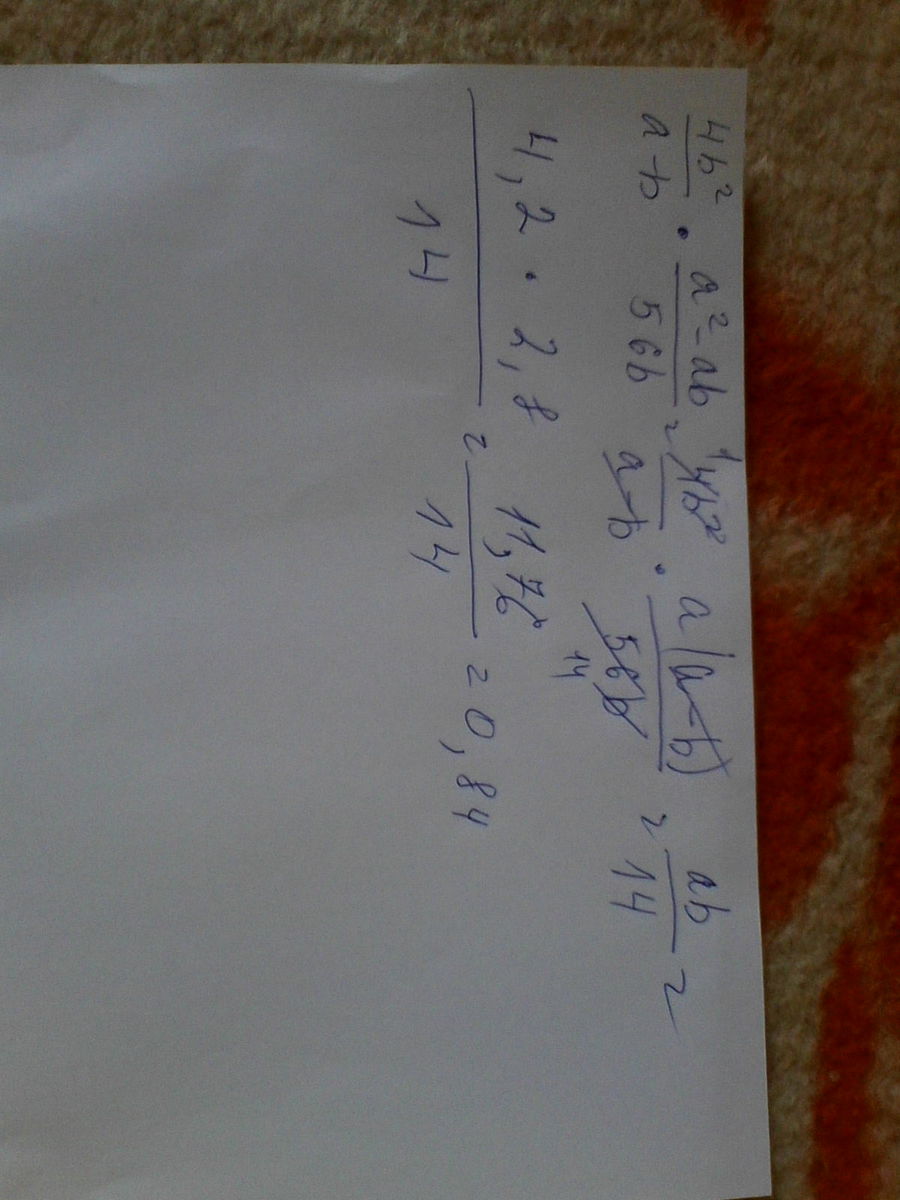 4b²/a-b · a²-ab/56b = ¹4b²/a-b · a(a-b)/56b 14 = ab/14 =
4,2 · 2,8/14 = 11,76/14 = 0,84